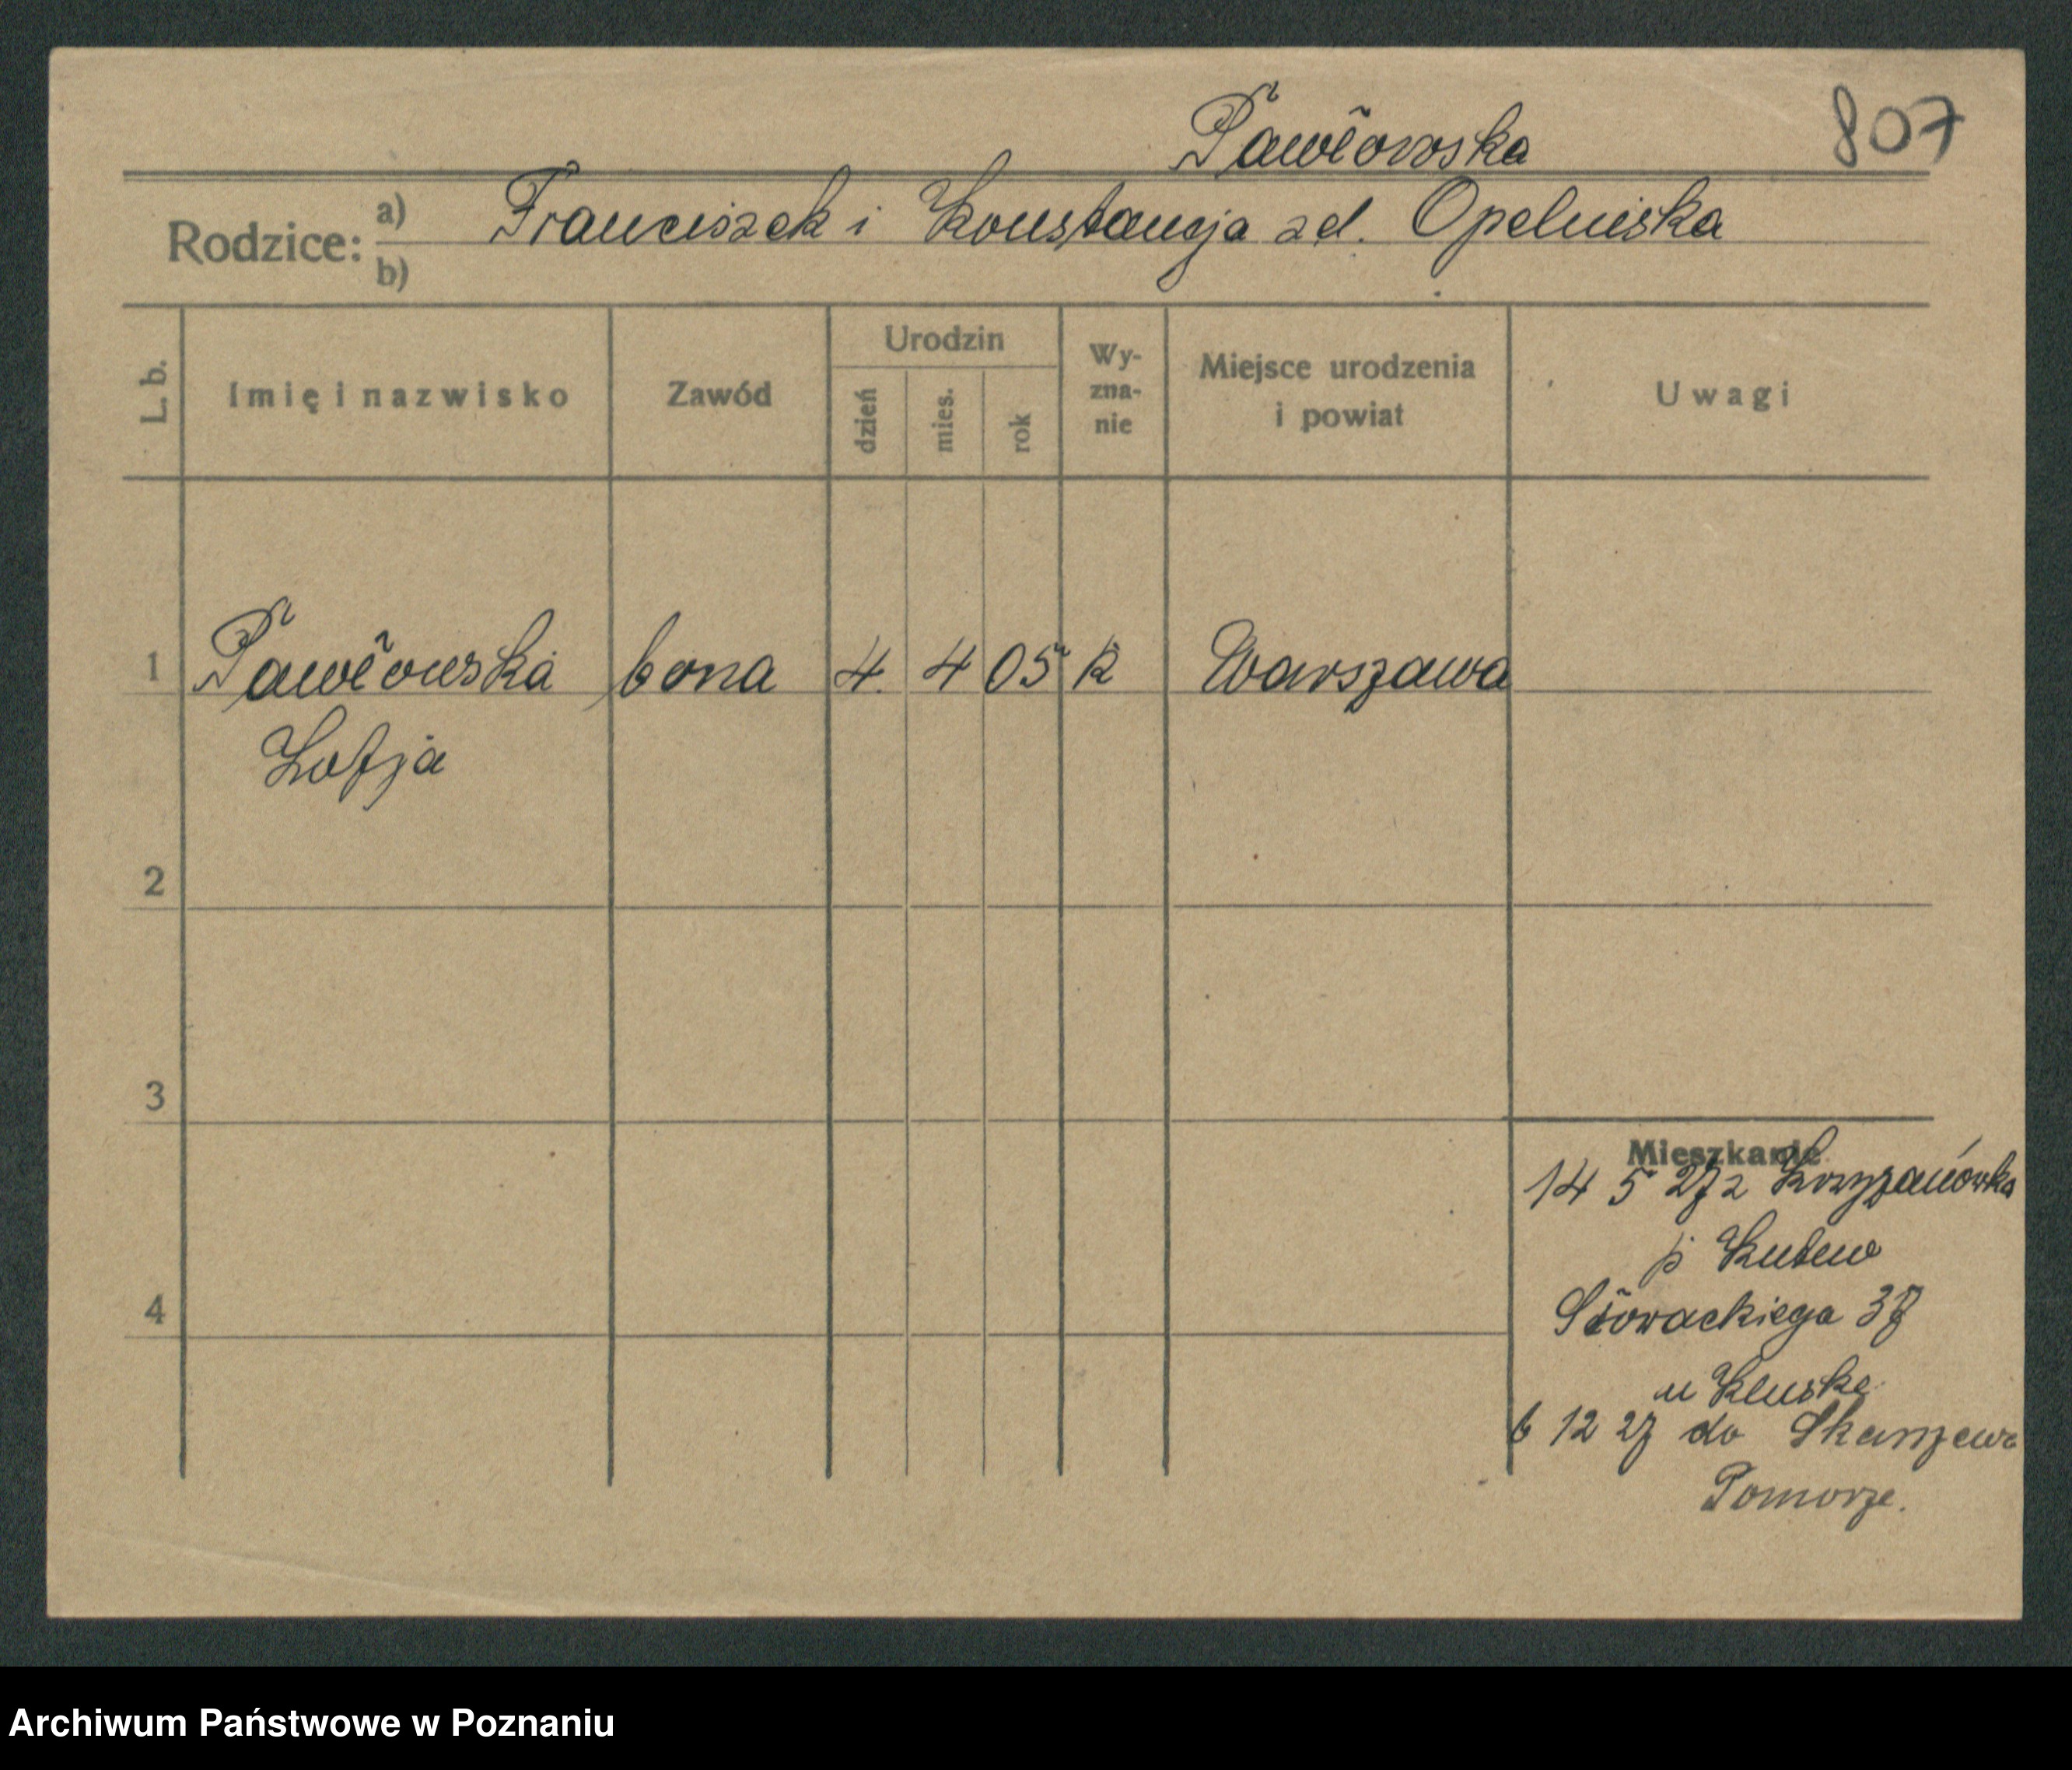 Pawłowska 807
Rodzice: a) Franciszek i Konstancja zd. Opelniska
b)
L. b. Imię i nazwisko Zawód Urodzin dzień mies. rok Wy-zna-nie Miejsce urodzenia i powiat Uwagi
1 Pawłowska bona 4. 4 05 k Warszawa
Zofja
2
3
Mieszkanie
14 5 27 z Krzyżanówka
p Kutno
4 Słowackiego 37
u Kluske
6 12 27 do Skarszewa
Pomorze.
Archiwum Państwowe w Poznaniu